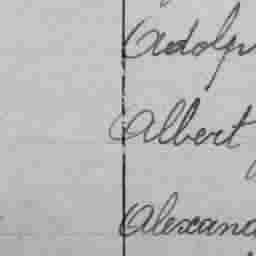 Adolp
Albert
Alexand